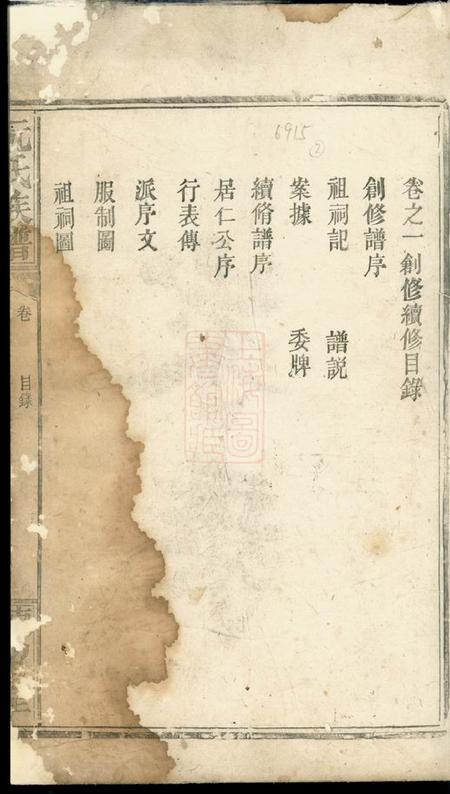 6915
②
卷之一創修續修目錄
創修譜序
祖祠記 譜説
案據 委牌
續脩譜序
居仁公序
行表傳
派序文
服制圖
祖祠圖
氏族譜
卷
目錄